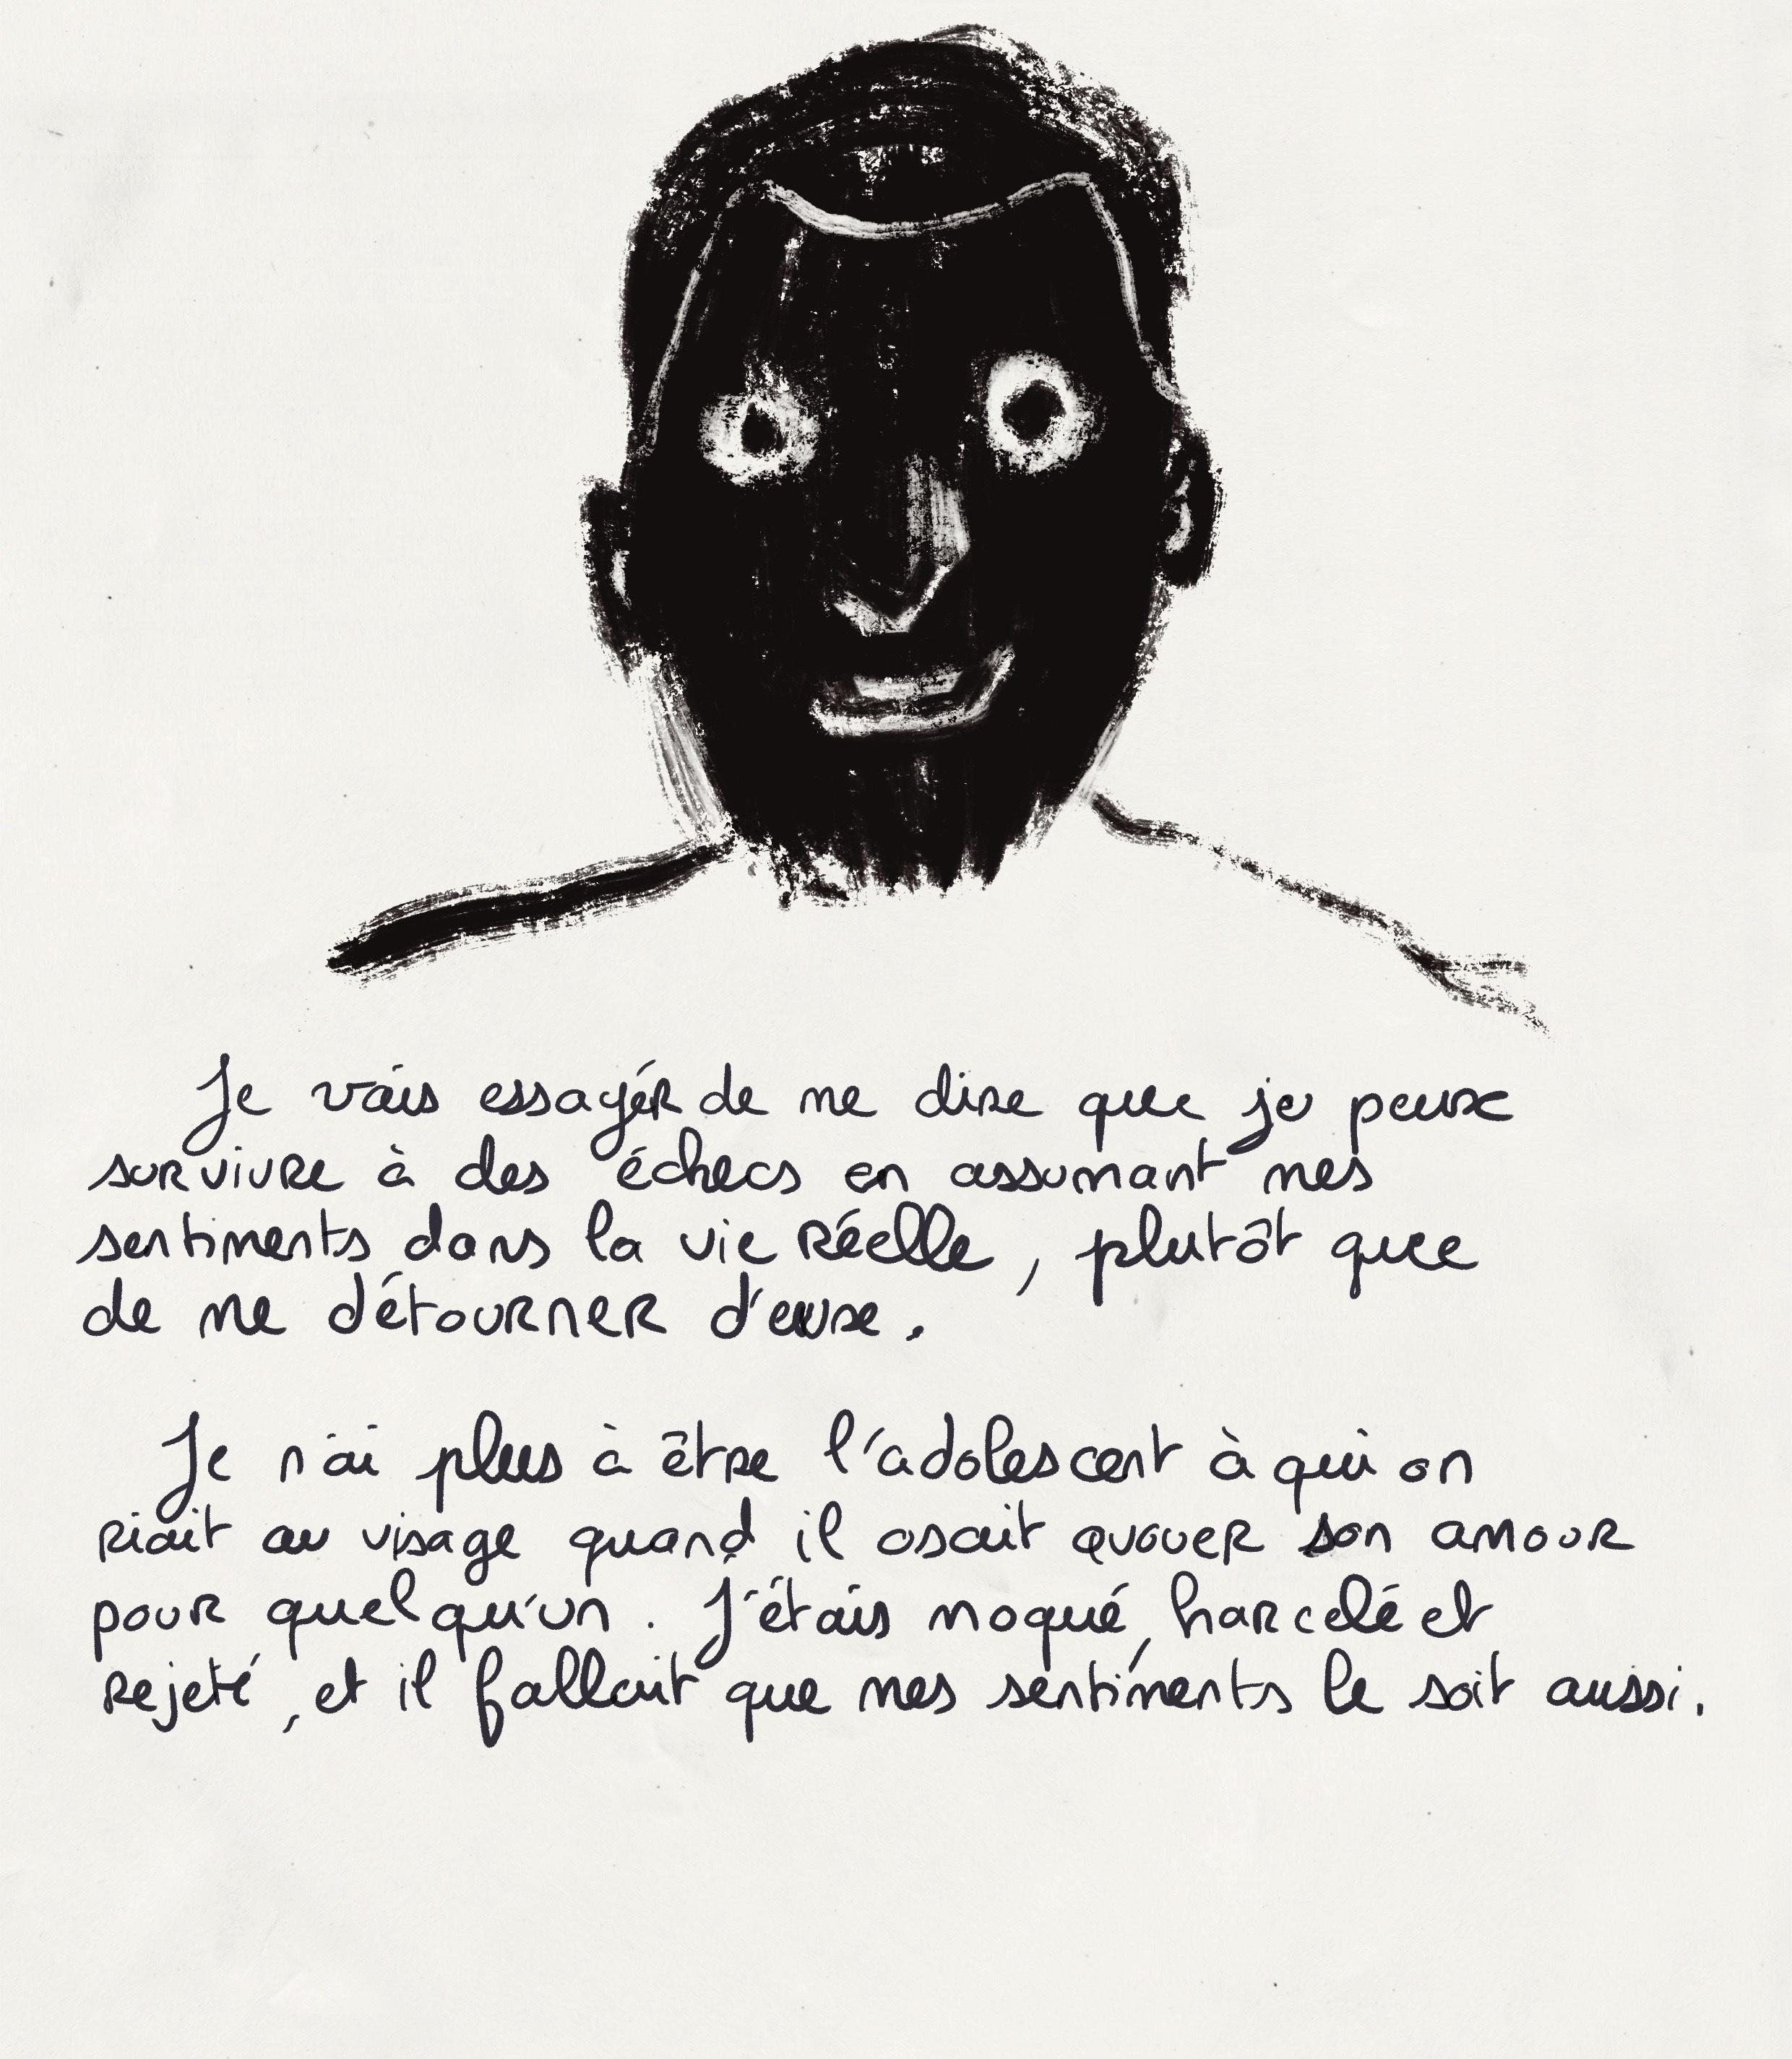 Je vais essayér de me dire que je peux
survivre à des échecs en assumant mes
sentiments dans la vie réelle, plutôt que
de me détourner d'eux.
Je n'ai plus à être l'adolescent à qui on
riait au visage quand il osait avouer son amour
pour quelqu'un. J'étais moqué, harcelé et
rejeté, et il fallait que mes sentiments le soit aussi.